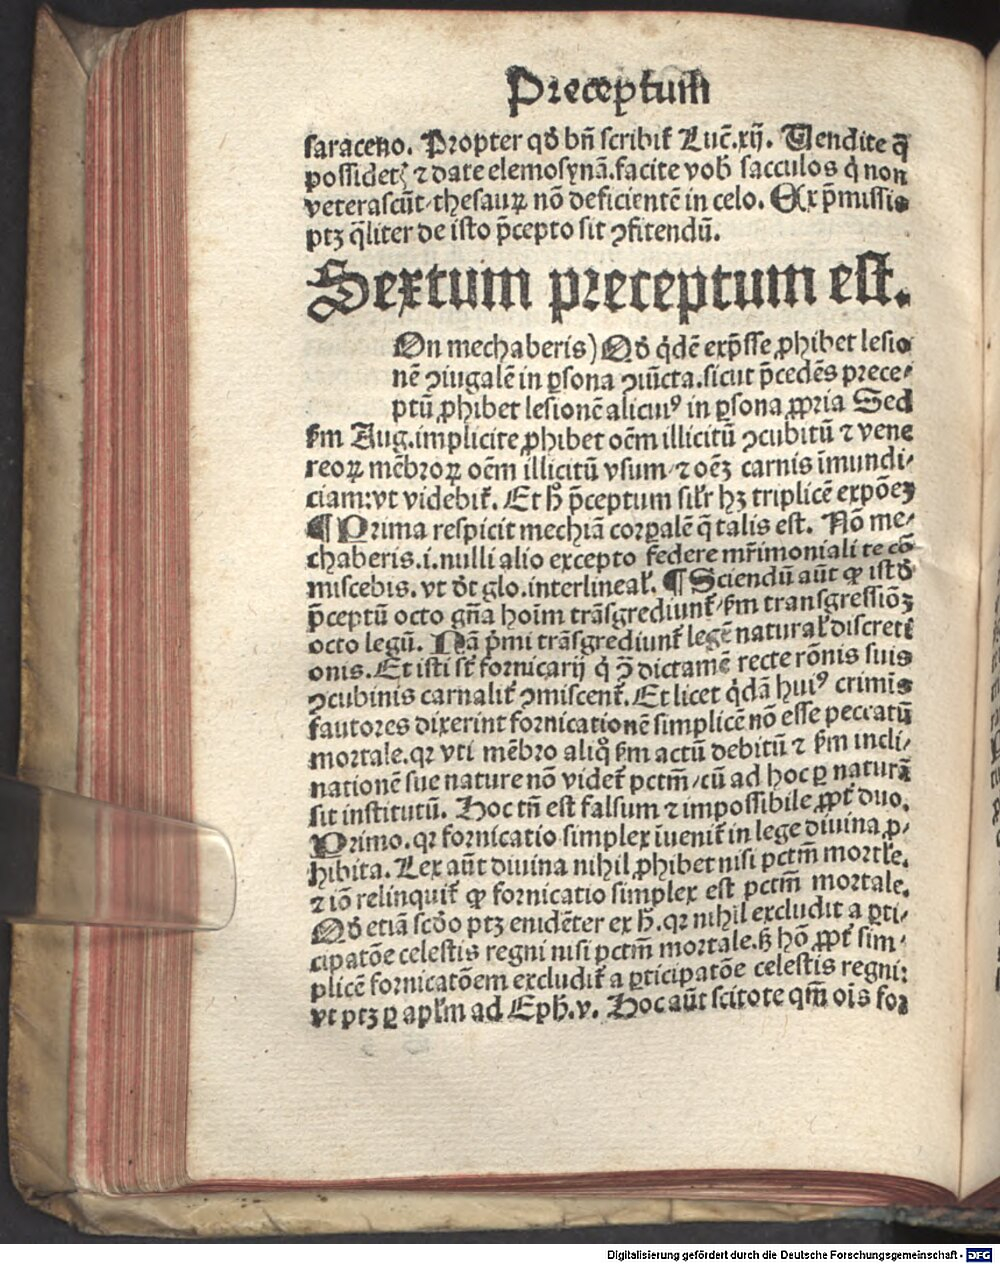 Preceptum
saraceno. Propter qđ bñ scribit᷑ Luc̄.xij. Uendite q̄
possidetꝭ ⁊ date elemosynā.facite vob̄ sacculos q̇ non
veterascūt/thesauꝝ nō deficientē in celo. Ex p̄missis
ptꝫ q̄liter de isto p̄cepto sit ꝯfitendū.
Sextum preceptum est.
On mechaberis) Qđ q̇dē exp̄sse ꝓhibet lesio
nē ꝯiugalē in ꝑsona ꝯiūcta.sicut p̄cedēs prece⸗
ptū ꝓhibet lesionē alicuiꝰ in ꝑsona ꝓpria Sed
ẜm Aug.implicite ꝓhibet oēm illicitū ꝯcubitū ⁊ vene
reoꝝ mēbroꝝ oēm illicitū vsum/⁊ oēꝫ carnis īmundi⸗
ciam:vt videbit᷑. Et h̄ p̄ceptum sil'r hꝫ triplicē expōeꝫ
¶ Prima respicit mechiā corꝑalē q̄ talis est. Nō me⸗
chaberis.i.nulli alio excepto federe mr̄imoniali te cō
miscebis. vt dt̄ glo.interlineal'. ¶ Sciendū aūt ꝙ istđ
p̄ceptū octo gn̄a hoīm trāsgrediunt᷑/ẜm transgressiōꝫ
octo legū. Nā ṗmi trāsgrediunt᷑ legē natural' discreti
onis. Et isti st̄ fornicarij q̇ ꝯ̄ dictamē recte rōnis suis
ꝯcubinis carnalit᷑ ꝯmiscent᷑. Et licet q̇dā huiꝰ crimīs
fautores dixerint fornicationē simplicē nō esse peccatū
mortale.qr vti mēbro aliq̊ ẜm actū debitū ⁊ ẜm incli⸗
nationē sue nature nō videt᷑ pctm̄/cū ad hoc ꝑ naturā
sit institutū. Hoc tn̄ est falsum ⁊ impossibile ꝓpt᷑ duo.
Primo.qr fornicatio simplex īuenit᷑ in lege diuina ꝓ⸗
hibita. Lex aūt diuina nihil ꝓhibet nisi pctm̄ mortl'e.
⁊ iō relinquit᷑ ꝙ fornicatio simplex est pctm̄ mortale.
Qđ etiā scđo ptꝫ euidēter ex h̄.qr nihil excludit a ꝑti⸗
cipatōe celestis regni nisi pctm̄ mortale.ꝭ hō ꝓpt᷑ sim⸗
plicē fornicatōem excludit᷑ a ꝑticipatōe celestis regni:
vt ptꝫ ꝑ apl'm ad Eph̄.v. Hoc aūt scitote qm̄ oīs for
Digitalisierung gefördert durch die Deutsche Forschungsgemeinschaft - DFG